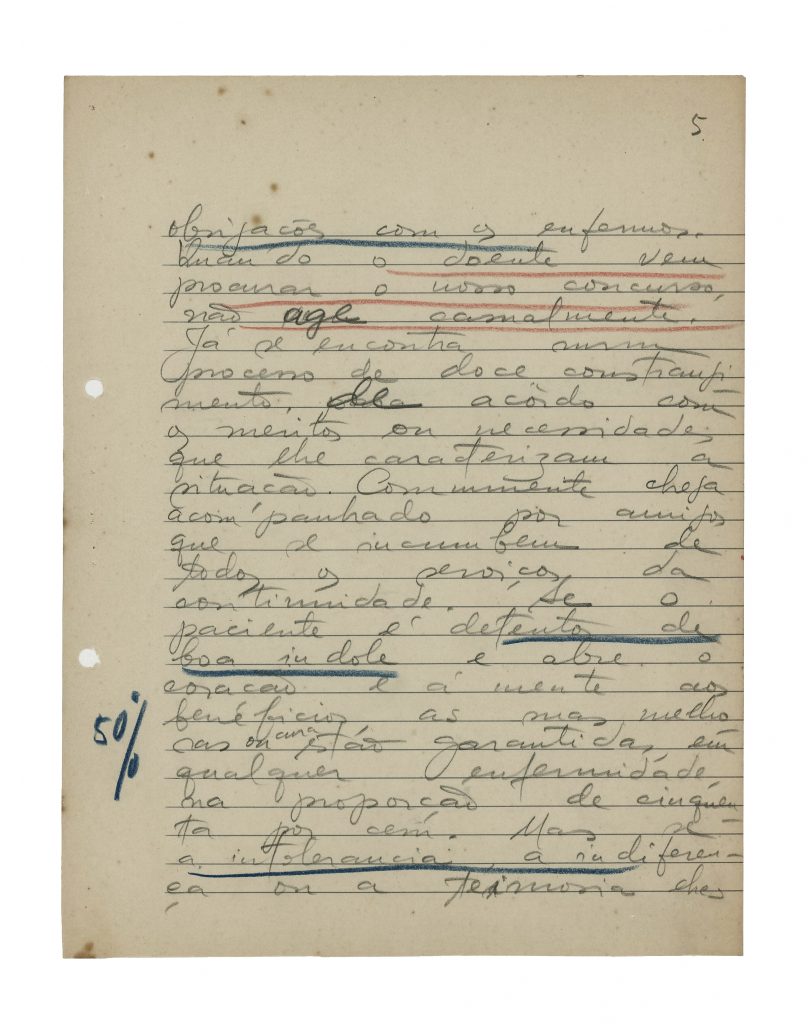 5
obrigações com os enfermos.
Quando o doente vem
procurar o nosso concurso,
não age casualmente.
Já se encontra num
processo de doce constrangi
mento, de acôrdo com
os meritos ou necessidades
que lhe caracterizam á
situação. Commumente chega
acompanhado por amigos
que se incumbem de
todos os serviços da
continuidade. Se o
paciente é detentor de
boa indole e abre o
coração e á mente aos
benéficios as suas melho
ras ou cura estão garantidas em
qualquer enfermidade
na proporção de cinquen
ta por cem. Mas se
50%
a intolerancia, a indiferen-
ça ou a teimosia